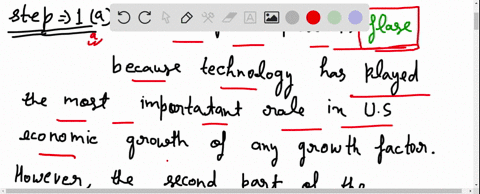 step => 1 (a) flase
a
because technology has played
the most importatant role in U.S
economic growth of any growth factor.
However, the second part of the